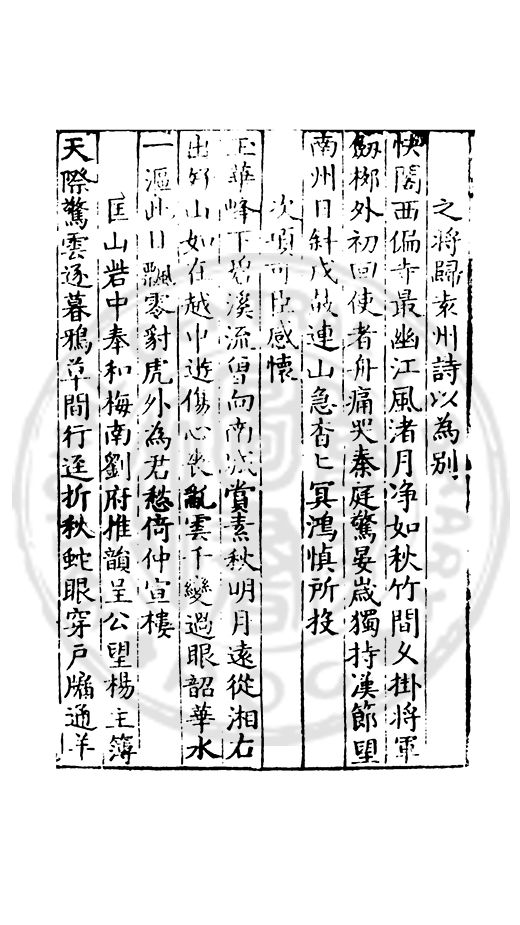 之將歸袁州詩以為别
快閣西偏寺最幽江風渚月净如秋竹間乆掛將軍
劔梛外初回使者舟痛哭秦庭驚晏嵗獨持漢節望
南州日斜戍鼓連山急杳匕冥鴻慎所投
次項可臣感懷
玉華峰下碧溪流曾向南城賞素秋明月遠從湘右
出好山如在越中遊傷心喪亂雲千變過眼韶華水
一漚此日飄零豺虎外為君愁倚仲宣樓
匡山岩中奉和梅南劉府推韻呈公望楊主簿
天際驚雲逐暮鴉草間行逕折秋蛇眼穿戸牖通羊